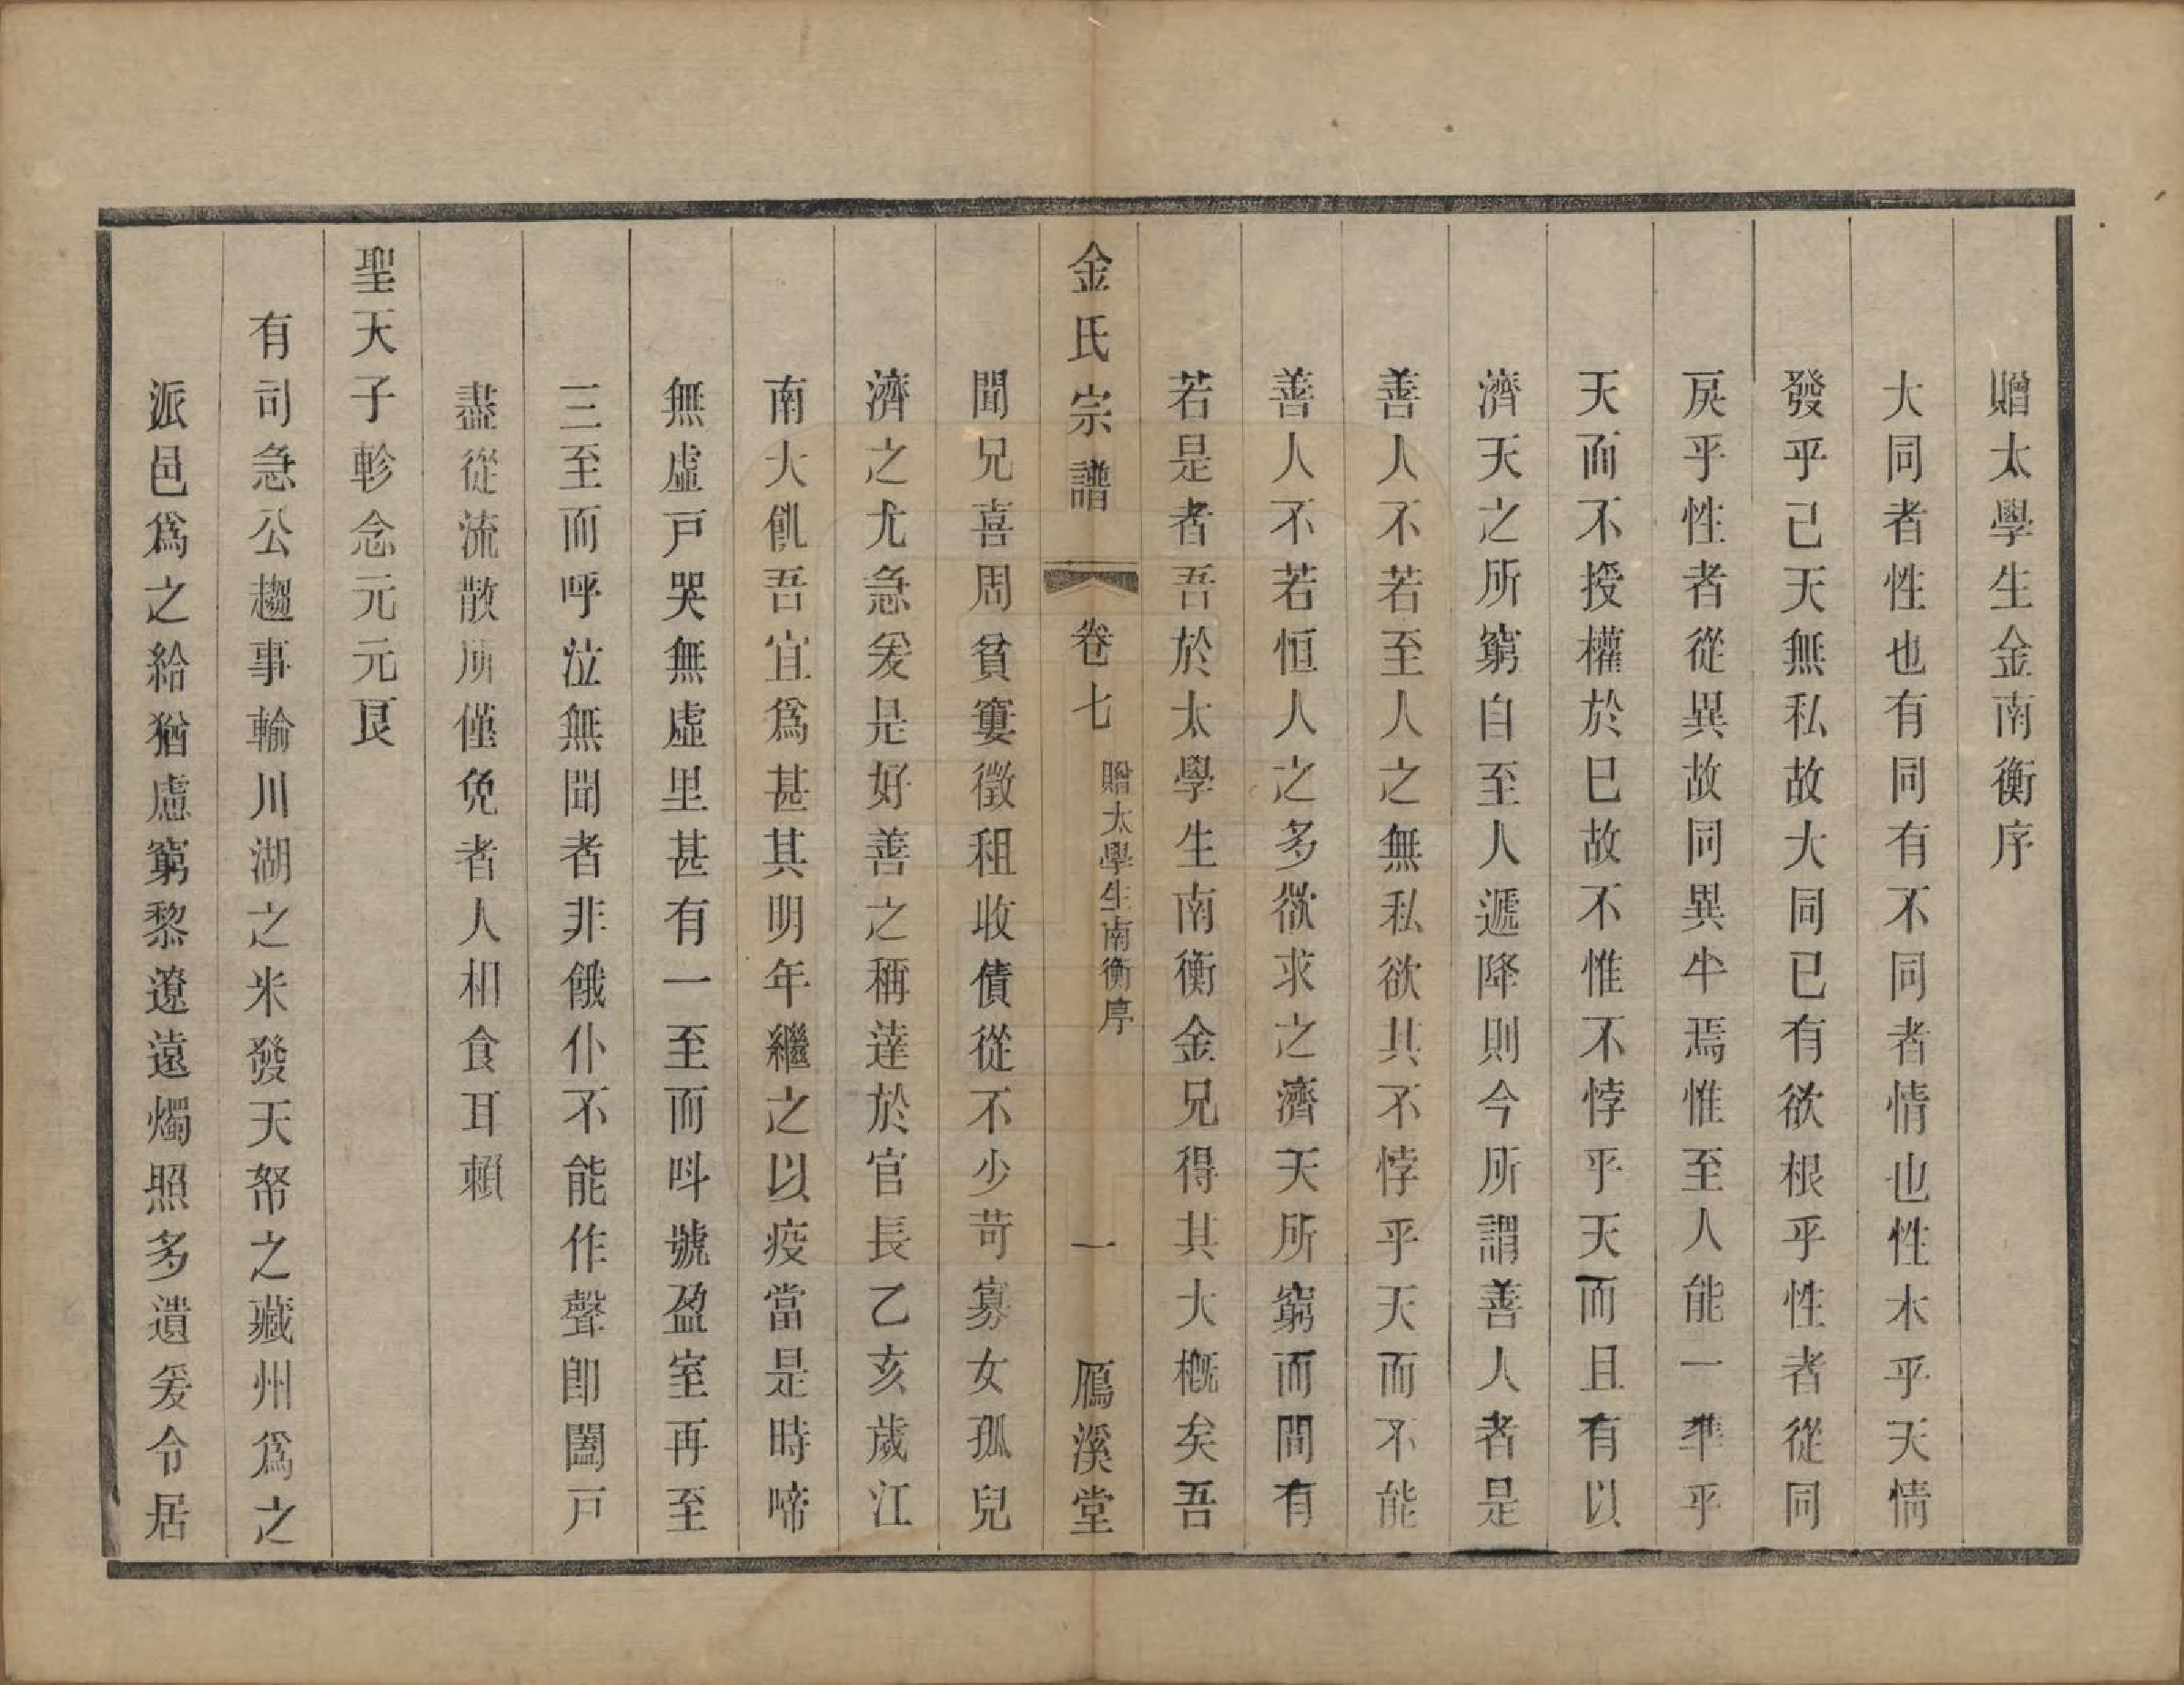 贈太學生金南衡序
大同者性也有同有不同者情也性木乎天情
發乎己天無私故大同已有欲根乎性者從同
戾乎性者從異故同異半焉惟至人能一準乎
天而不授權於巳故不惟不悖乎天而且有以
濟天之所窮自至人遞降則今所謂善人者是
善人不若至人之無私欲其不悖乎天而不能
善人不若恒人之多欲求之濟天所窮而間有
若是者吾於太學生南衡金兄得其大概矣吾
金氏宗譜 卷七 贈太學生南衡序 一 鴈溪堂
聞兄喜周貧窶徵租收債從不少苛寡女孤兒
濟之尤急爰是好善之稱達於官長乙亥歲江
南大飢吾宜爲甚其明年繼之以疫當是時啼
無虛戸哭無虛里甚有一至而呌號盈室再至
三至而呼泣無聞者非餓仆不能作聲卽闔戸
盡從流散所僅免者人相食耳賴
聖天子軫念元元艮
有司急公趨事輸川湖之米發天帑之藏州爲之
派邑爲之給猶慮窮黎遼遠燭照多遺爰令居